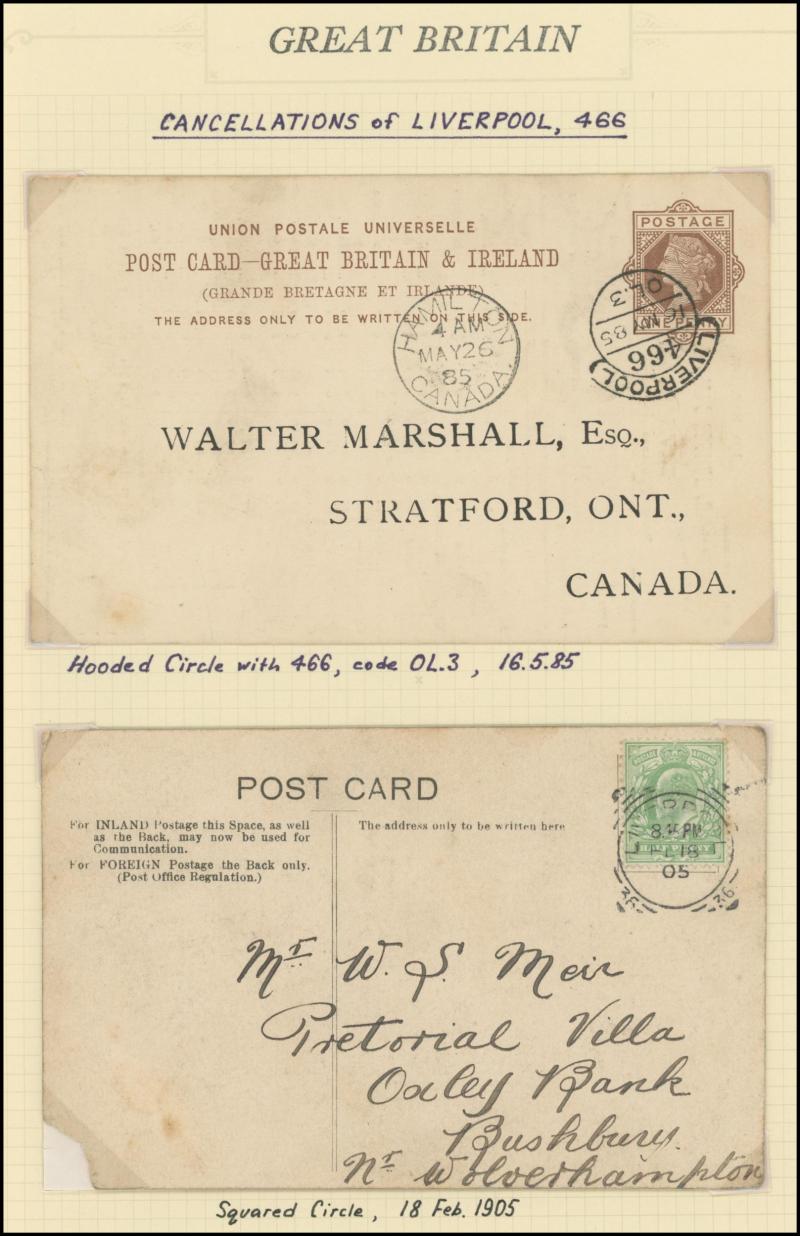 GREAT BRITAIN
CANCELLATIONS of LIVERPOOL, 466
UNION POSTALE UNIVERSELLE
POST CARD—GREAT BRITAIN & IRELAND
(GRANDE BRETAGNE ET IRLANDE)
THE ADDRESS ONLY TO BE WRITTEN ON THIS SIDE.
POSTAGE
ONE PENNY
HAMILTON
4 AM
MAY 26
85
CANADA.
OL.3
16 MY 85
466
LIVERPOOL
WALTER MARSHALL, Esq.,
STRATFORD, ONT.,
CANADA.
Hooded Circle with 466, code OL.3, 16.5.85
POST CARD
For INLAND Postage this Space, as well
as the Back, may now be used for
Communication.
For FOREIGN Postage the Back only.
(Post Office Regulation.)
The address only to be written here
HALF PENNY
PM
18
05
36
36
Mr W. S. Meir
Pretorial Villa
Oxley Bank
Bushbury.
Nr Wolverhampton
Squared Circle, 18 Feb. 1905